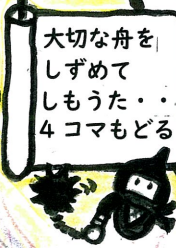 大切な舟を
しずめて
しもうた・・
4コマもどる